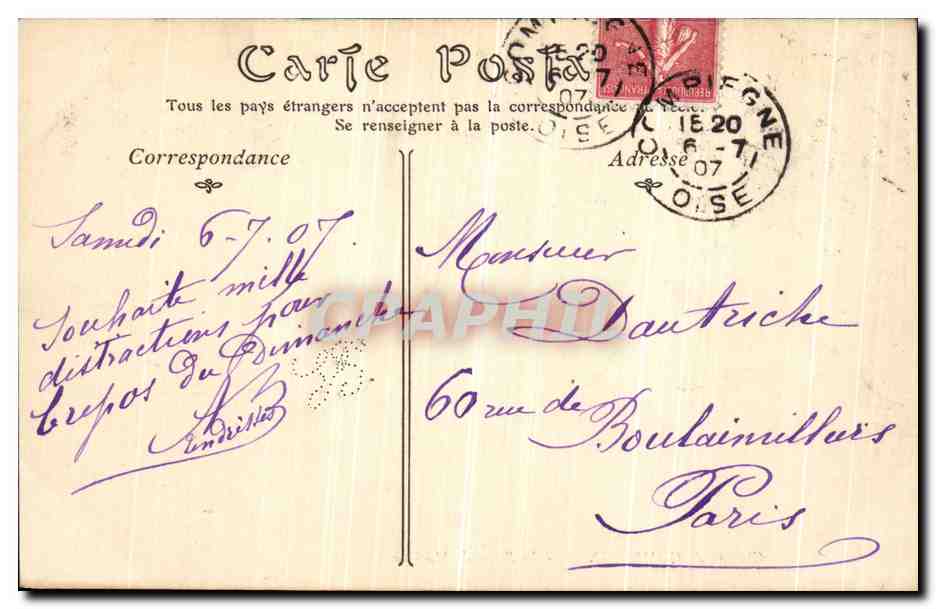 Carte Posta
Tous les pays étrangers n'acceptent pas la correspondance au recto.
Se renseigner à la poste.
Correspondance
Adresse
COMPIEGNE
15 20
6-7
07
OISE
Samedi 6-7.07.
Souhaite mille
distractions pour
le repos du Dimanche
Monsieur
Dautriche
60 rue de
Boulainvilliers
Paris
CRAPHIL